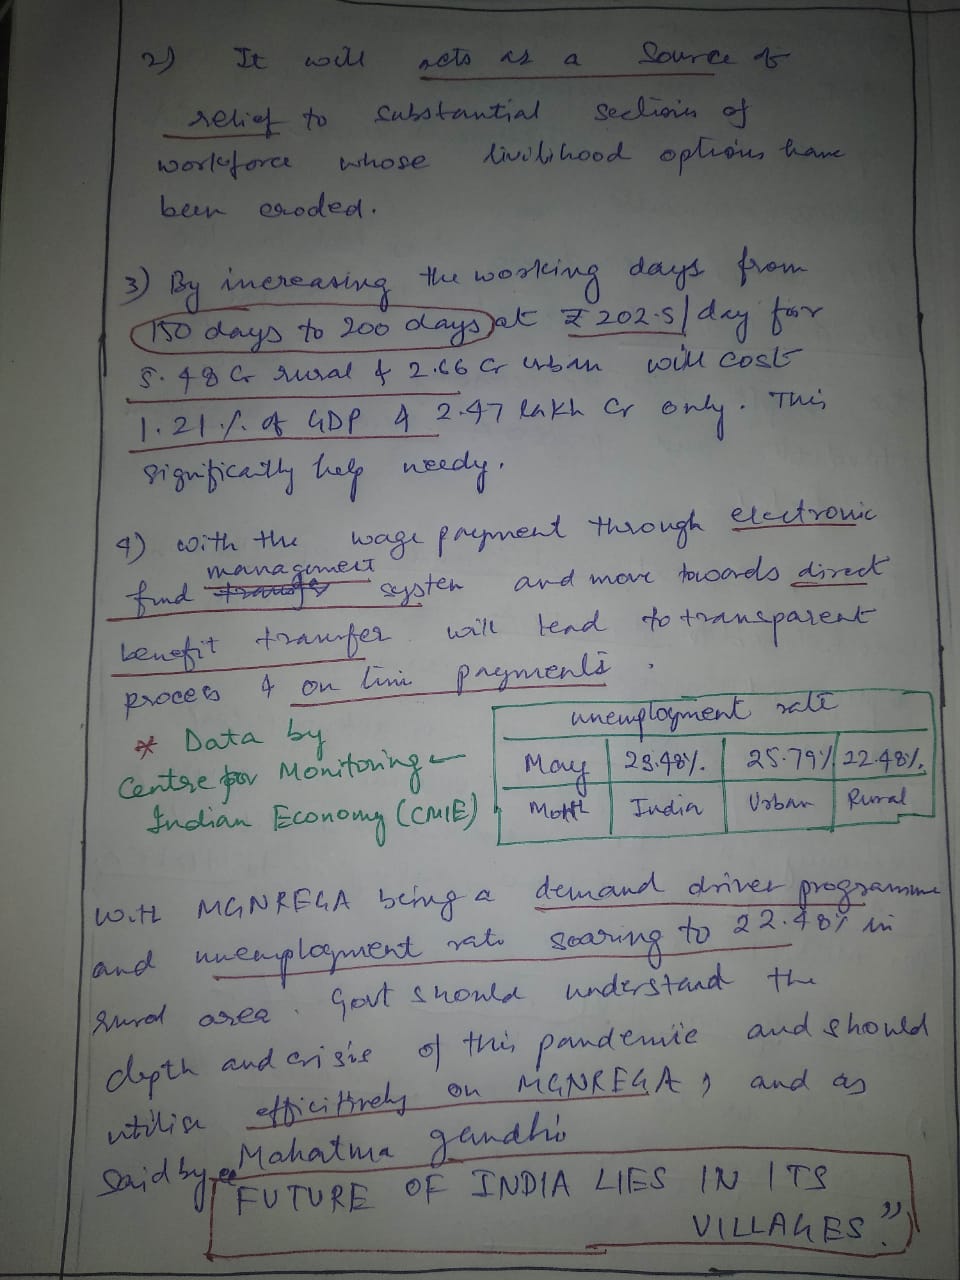 2) It will acts as a Source of
relief to substantial sections of
workforce whose livilihood options have
been eroded.
3) By increasing the working days from
150 days to 200 days at ₹ 202.5/day for
5.48 Cr rural & 2.66 Cr urban will cost
1.21 % of GDP & 2.47 lakh Cr only. This
significatly help needy.
4) with the wage payment through electronic
management
fund transfe system and move towards direct
benefit transfer will lead to transparent
process & on line payments.
* Data by
Centre for Monitoring
Indian Economy (CMIE)
unemployment rate
May 23.48%. 25.79% 22.48%.
Month India Urban Rural
With MGNREGA being a demand driven programme
and unemployment rate soaring to 22.48% in
rural area. Govt should understand the
depth and crisis of this pandemic and should
utilise efficitively on MGNREGA, and as
Said by Mahatma gandhi
"FUTURE OF INDIA LIES IN ITS
VILLAGES."